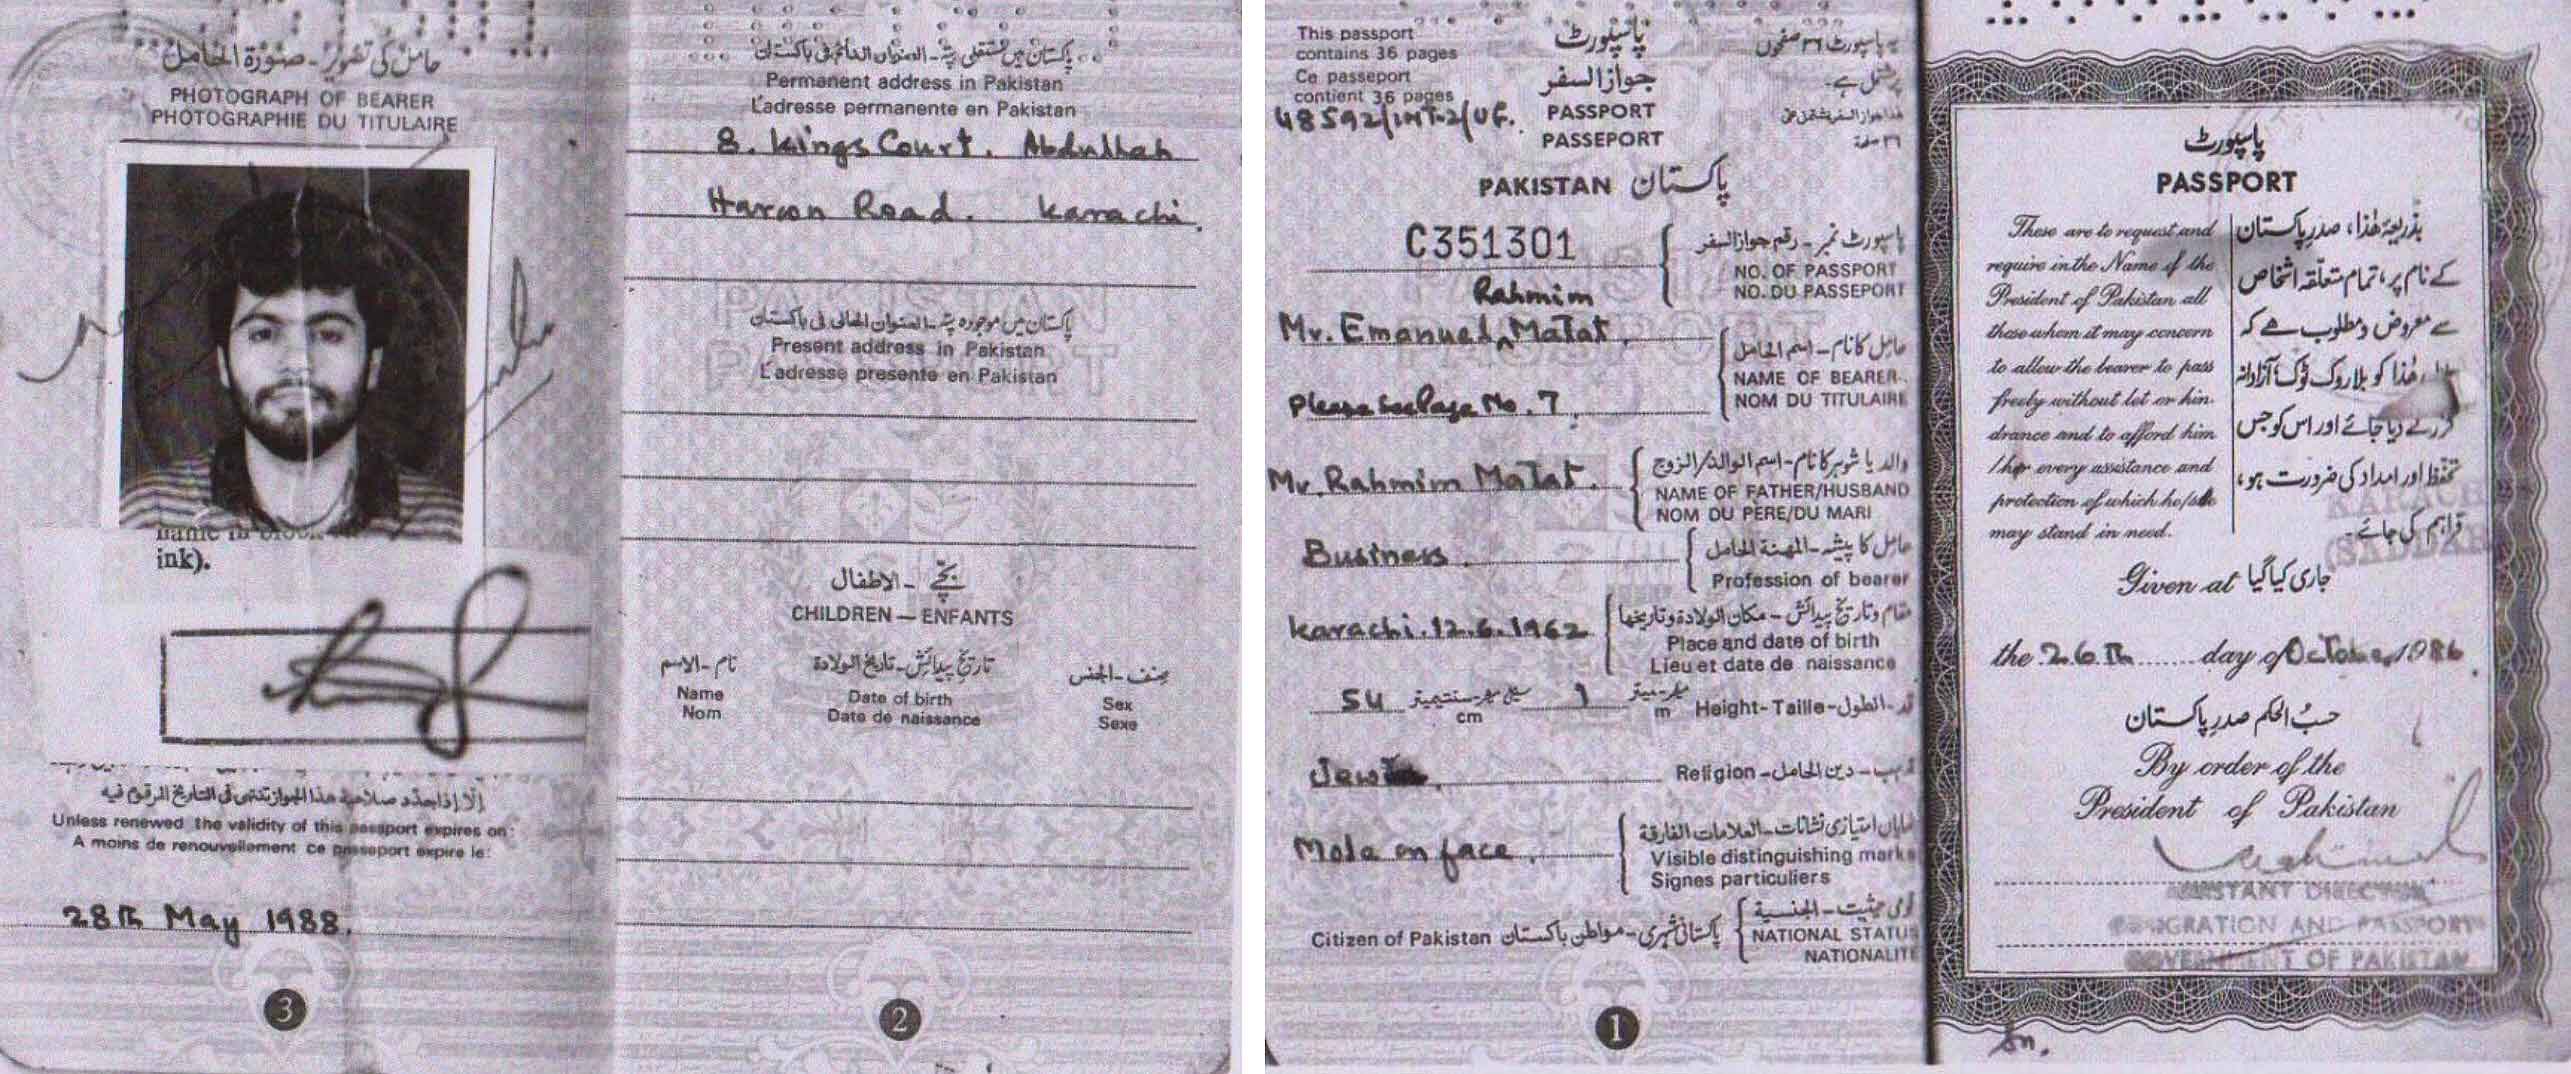 حامل کی تصویر - صورة الحامل
PHOTOGRAPH OF BEARER
PHOTOGRAPHIE DU TITULAIRE
ink).
إلا إذا جدد صلاحية هذا الجواز تنتهي في التاريخ المرقوم فيه
Unless renewed the validity of this passport expires on:
A moins de renouvellement ce passeport expire le:
28th May 1988.
3
پاکستان میں مستقل پتہ - العنوان الدائم في باكستان
Permanent address in Pakistan
L'adresse permanente en Pakistan
8. Kings Court. Abdullah
Haroon Road. Karachi.
پاکستان میں موجودہ پتہ - العنوان الحالي في باكستان
Present address in Pakistan
L'adresse presente en Pakistan
بچے - الاطفال
CHILDREN — ENFANTS
نام - الاسم
Name
Nom
تاریخ پیدائش - تاريخ الولادة
Date of birth
Date de naissance
صنف - الجنس
Sex
Sexe
2
This passport
contains 36 pages
Ce passeport
contient 36 pages
48592/INT-2/UF.
پاسپورٹ
جواز السفر
PASSPORT
PASSEPORT
یہ پاسپورٹ ۳۶ صفحوں
پر مشتمل ہے۔
هذا جواز السفر يشتمل على
٣٦ صفحة
PAKISTAN پاکستان
C351301
پاسپورٹ نمبر - رقم جواز السفر
NO. OF PASSPORT
NO. DU PASSEPORT
Rahmim
Mr. Emanuel Matat.
Please see Page No. 7
حامل کا نام - اسم الحامل
NAME OF BEARER
NOM DU TITULAIRE
Mr. Rahmim Matat.
والد یا شوہر کا نام - اسم الوالد/الزوج
NAME OF FATHER/HUSBAND
NOM DU PÈRE/DU MARI
Business
حامل کا پیشہ - المهنة الحامل
Profession of bearer
Karachi. 12.6.1962
مقام و تاریخ پیدائش - مكان الولادة وتاريخها
Place and date of birth
Lieu et date de naissance
54 سینٹی میٹر - سنتيميتر cm 1 میٹر - ميتر m Height-Taille - قد - الطول
Religion - مذہب - دين الحامل
Mole on face
نمایاں امتیازی نشانات - العلامات الفارقة
Visible distinguishing marks
Signes particuliers
Citizen of Pakistan پاکستانی شہری - مواطن باكستان
قومی حیثیت - الجنسية
NATIONAL STATUS
NATIONALITE
1
پاسپورٹ
PASSPORT
These are to request and
require in the Name of the
President of Pakistan all
those whom it may concern
to allow the bearer to pass
freely without let or hin-
drance and to afford him
/her every assistance and
protection of which he/she
may stand in need.
بذریعہ ھٰذا، صدرِ پاکستان
کے نام پر، تمام متعلقہ اشخاص
سے معروض و مطلوب ہے کہ
ھٰذا کو بلا روک ٹوک آزادانہ
گزرنے دیا جائے اور اس کو جس
تحفظ اور امداد کی ضرورت ہو،
فراہم کی جائے۔
KARACHI
(SADDAR
Given at جاری کیا گیا
the 26th day of October, 1986.
حسبُ الحکم صدرِ پاکستان
By order of the
President of Pakistan
ASSISTANT DIRECTOR
IMMIGRATION AND PASSPORT
GOVERNMENT OF PAKISTAN